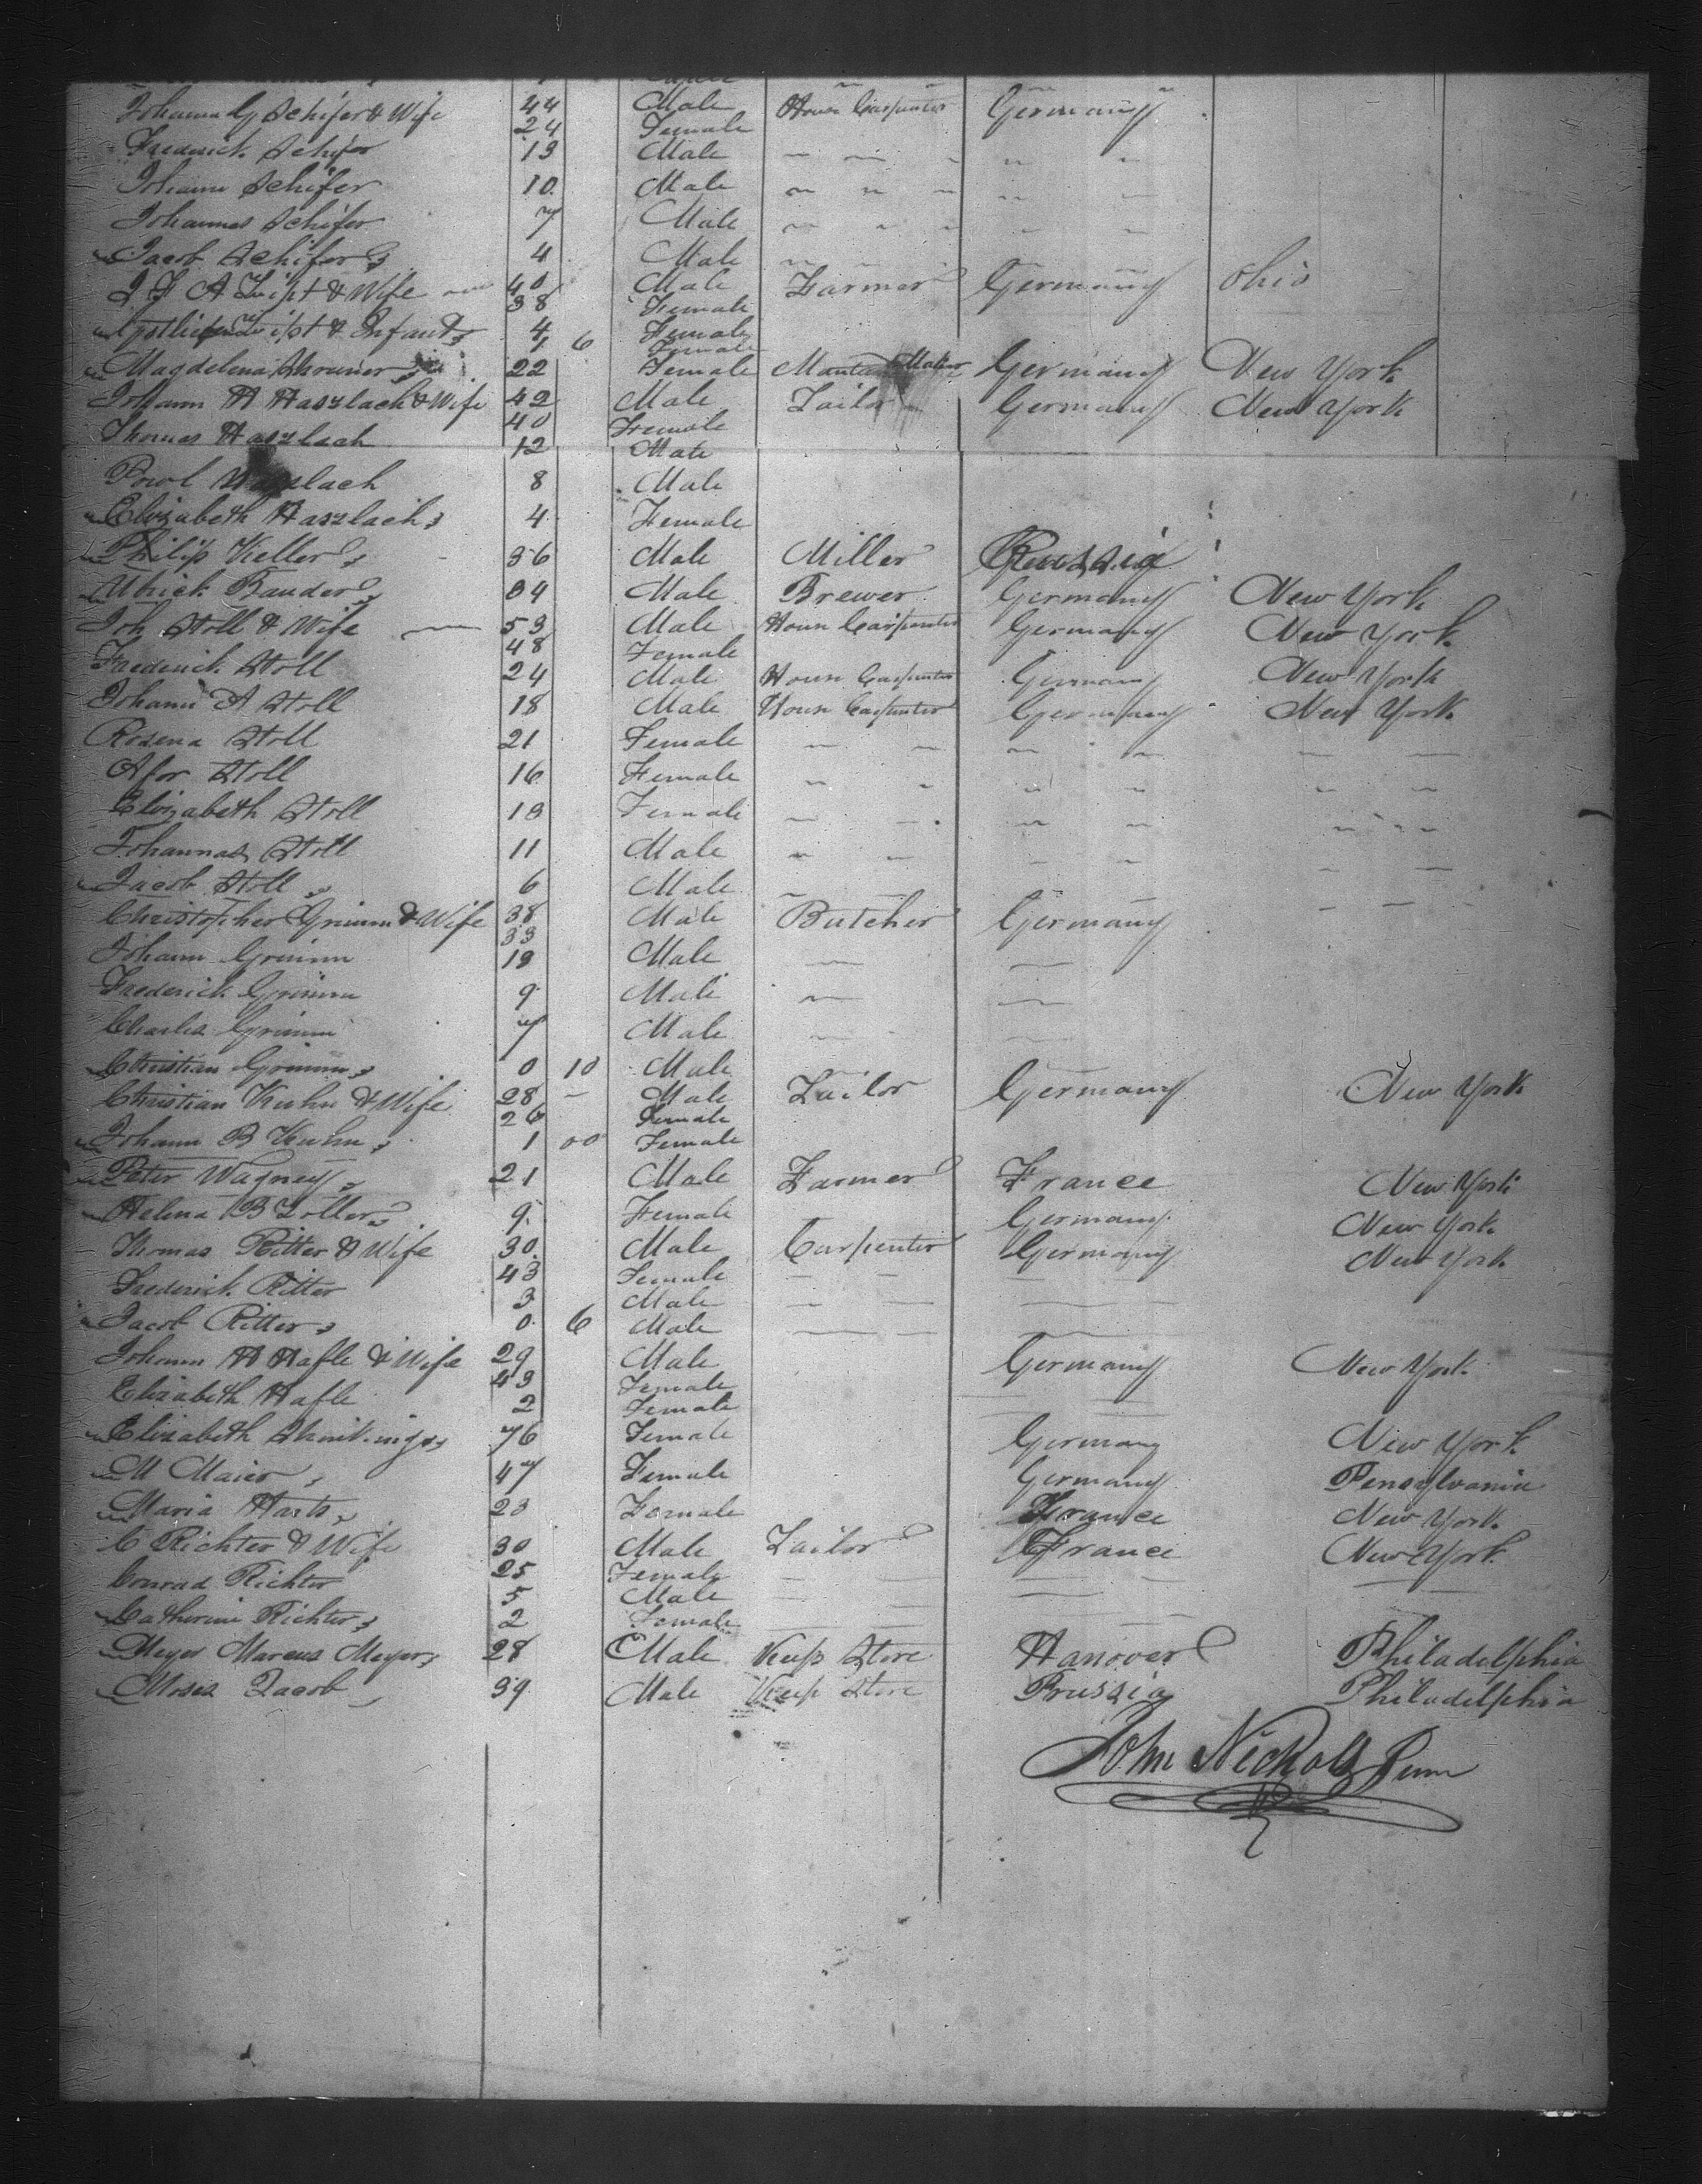 Johann G Schifer & Wife 44 Male House Carpenter Germany
24 Female
Frederick Schifer 13 Male
Johann Schifer 10 Male
Johannes Schifer 7 Male
Jacob Schifer 4 Male
J F A & Wife 40 Male Farmer Germany Ohio
38 Female
& Infant 4 Female
6 Female
Magdelena 22 Female Mantua Maker Germany New York
Johann H Haszlach & Wife 42 Male Tailor Germany New York
40 Female
Thomas Haszlach 12 Male
Powl Haszlach 8 Male
Elizabeth Haszlach 4 Female
Philip Keller 36 Male Miller Prussia
Ulrick Bauder 34 Male Brewer Germany New York
Joh Stoll & Wife 53 Male House Carpenter Germany New York
48 Female
Frederick Stoll 24 Male House Carpenter Germany New York
Johann A Stoll 18 Male House Carpenter Germany New York
Rosena Stoll 21 Female
Afor Stoll 16 Female
Elizabeth Stoll 13 Female
Johannas Stoll 11 Male
Jacob Stoll 6 Male
Christopher Grimm & Wife 38 Male Butcher Germany
33
Johann Grimm 13 Male
Frederick Grimm 9 Male
Charles Grimm 7 Male
Christian Grimm 0 10 Male
Christian Kuhn & Wife 28 Male Tailor Germany New York
26 Female
Johann B Kuhn 1 00 Female
Peter Wagney 21 Male Farmer France New York
Helena B Zoller 9 Female Germany New York
Thomas Ritter & Wife 30 Male Carpenter Germany New York
43 Female
Frederick Ritter 3 Male
Jacob Ritter 0 6 Male
Johann H Hafle & Wife 29 Male Germany New York
43 Female
Elizabeth Hafle 2 Female
Elizabeth 76 Female Germany New York
M Maier 47 Female Germany Pensylvania
Maria Harts 23 Female France New York
C Richter & Wife 30 Male Tailor France New York
25 Female
Conrad Richter 5 Male
Catherine Richter 2 Female
Meyer Marcus Meyer 28 Male Keep Store Hanover Philadelphia
Moses Jacob 39 Male Keep Store Prussia Philadelphia
John Nickols